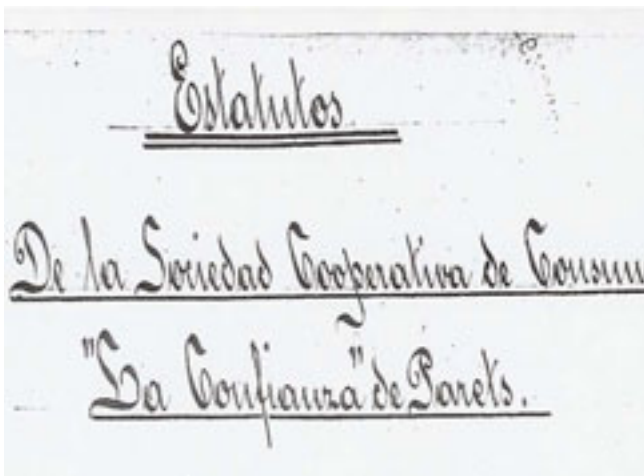 Estatutos
De la Sociedad Cooperativa de Consum
"La Confianza" de Parets.